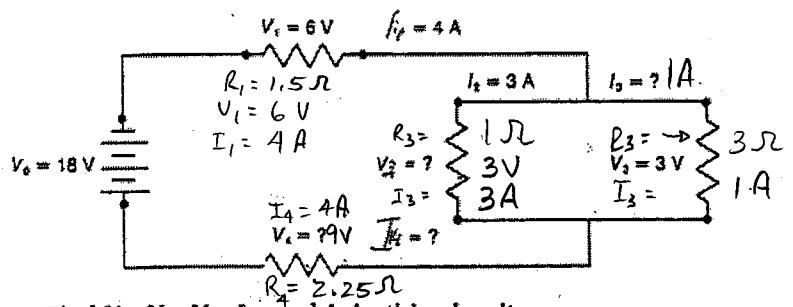 V₁ = 6 V
I₁ = 4 A
R₁ = 1.5 Ω
V₁ = 6 V
I₁ = 4 A
I₂ = 3 A
I₃ = ? 1A.
V₀ = 18 V
R₃ = 1 Ω
V₂ = ? 3V
I₃ = 3A
R₃ = → 3 Ω
V₃ = 3 V
I₃ = 1 A
I₄ = 4A
V₄ = ? 9V
= ?
R₄ = 2.25 Ω